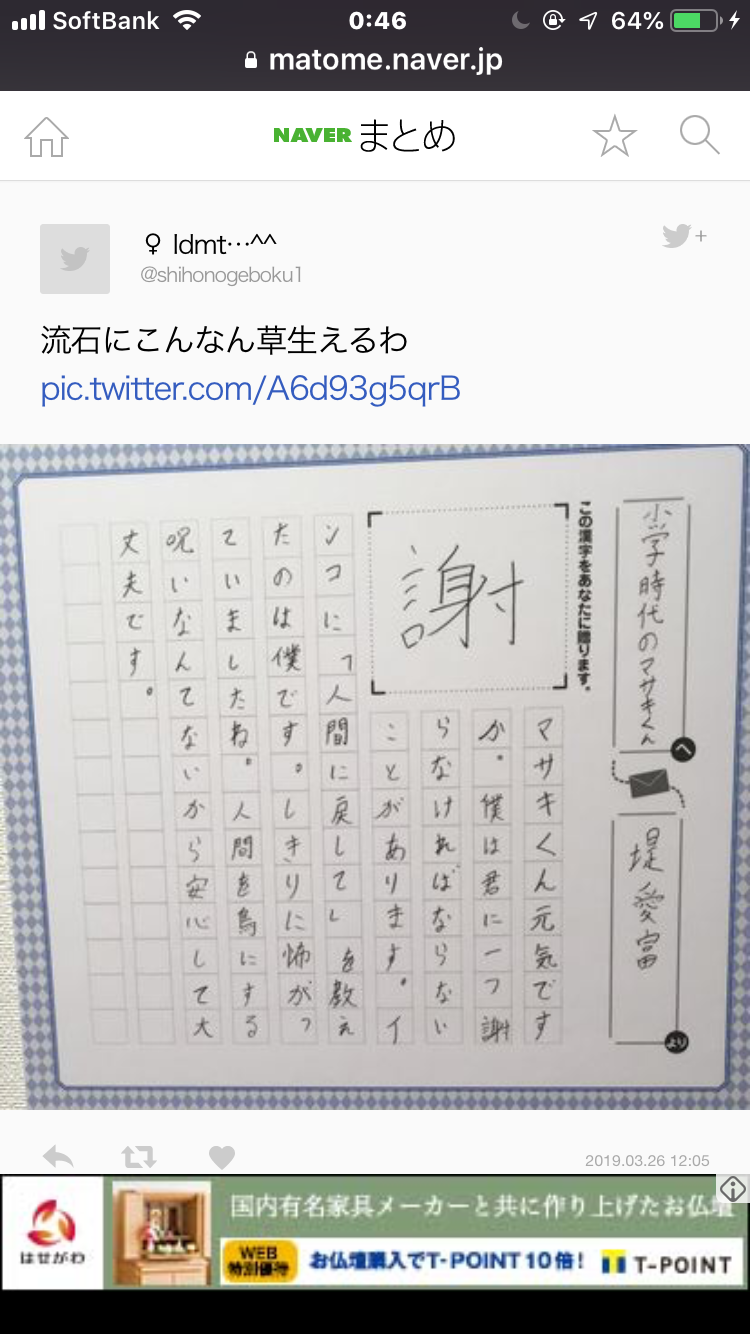 SoftBank 0:46 64%
matome.naver.jp
NAVER まとめ
♀ ldmt…^^
@shihonogeboku1
流石にこんなん草生えるわ
pic.twitter.com/A6d93g5qrB
小学時代のマサキくん へ
堤 愛富 より
この漢字をあなたに贈ります。
謝
マサキくん元気です
か。僕は君に一つ謝
らなければならない
ことがあります。イ
ンコに「人間に戻して」を教え
たのは僕です。しきりに怖がっ
ていましたね。人間を鳥にする
呪いなんてないから安心して大
丈夫です。
2019.03.26 12:05
はせがわ
国内有名家具メーカーと共に作り上げたお仏壇
WEB
特別優待
お仏壇購入でT-POINT 10倍!
T-POINT